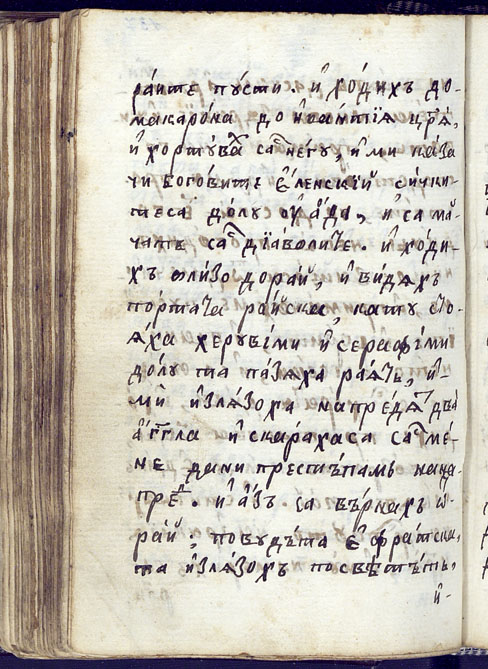 ра́ите пу́сти. и҆ хо́дихъ до-
макаро́на до и҆ѡа́нтїѧ цр҃ѧ̀,
и҆ хорту́ва са не́гу, и҆ ми ка́за
чи богови́те є҆́ленскїй си́чки-
теса до́лу ѹ҆ а́да, и҆ са мѫ́-
чатъ са дїа́воли́те. и҆ хо́ди-
хъ близо дорай, и҆ ви́дѧхъ
по́рта́та ра́йска, кату сто-
ѧ́ха херуви́ми и҆ серафі́ми
до́лу та па́зѧха ра́ѧтъ, и҆-
ми и҆злѧ́зоха напре́дѧ два
а҆́гг҃ла и҆ скараха́са са ме́-
не дани престѫ́памъ нана-
пре́. и҆ а҆́зъ са въ́рнахъ ѿ
рай; поводъ́та є҆фра́тска,
та и҆злѧ́зохъ посвѣ́тътъ,
и҆-